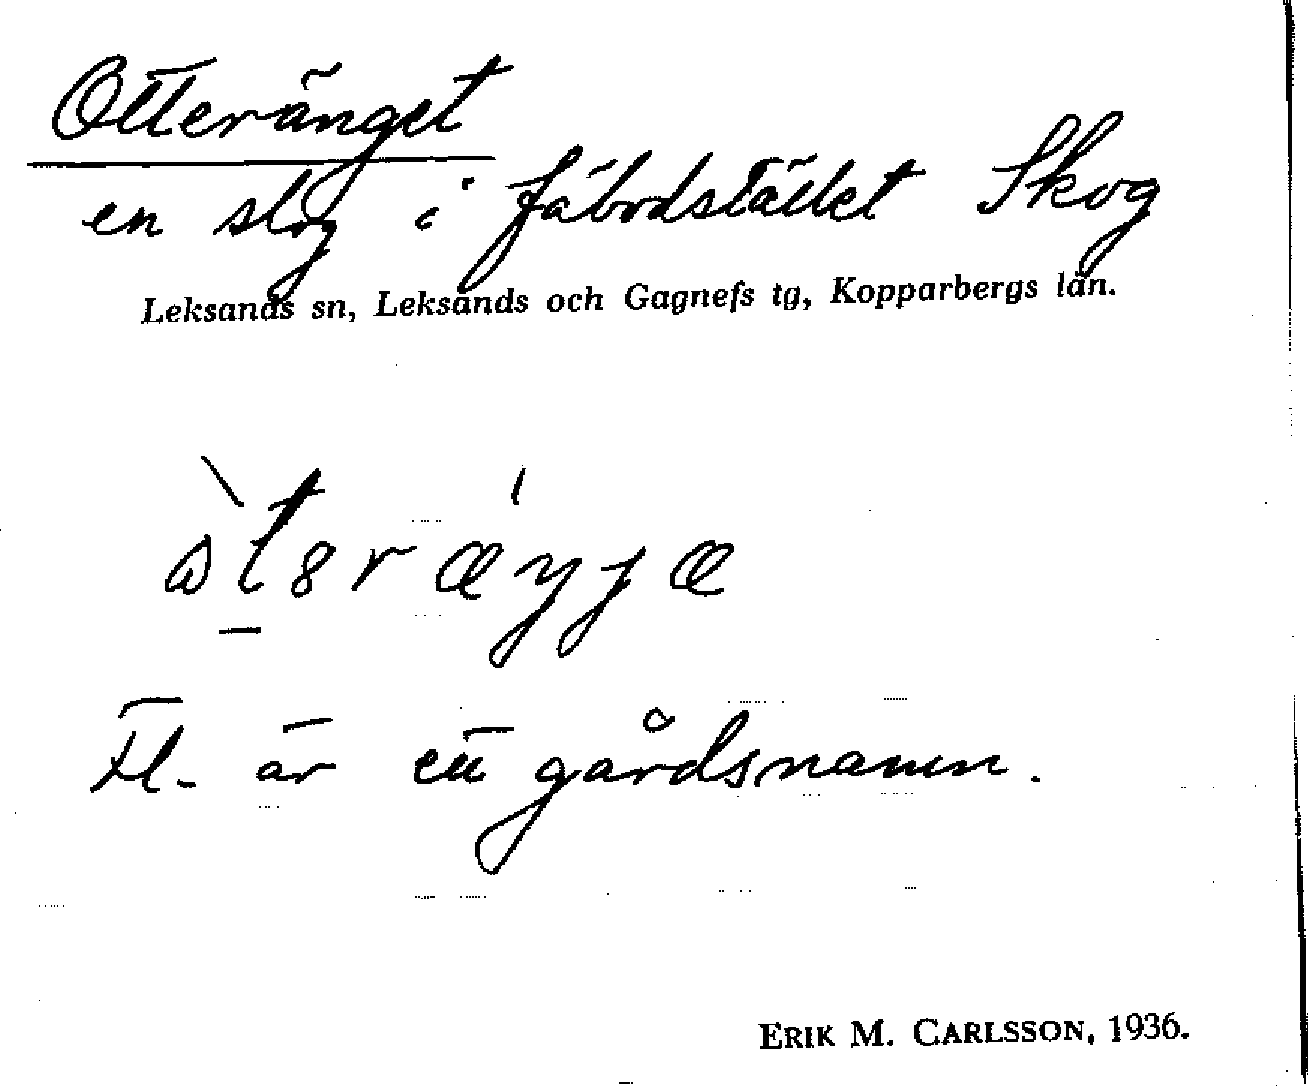 Otteränget
en slog i fäbodstället Skog
Leksands sn, Leksands och Gagnefs tg, Kopparbergs län.
Fl. är ett gårdsnamn.
ERIK M. CARLSSON, 1936.